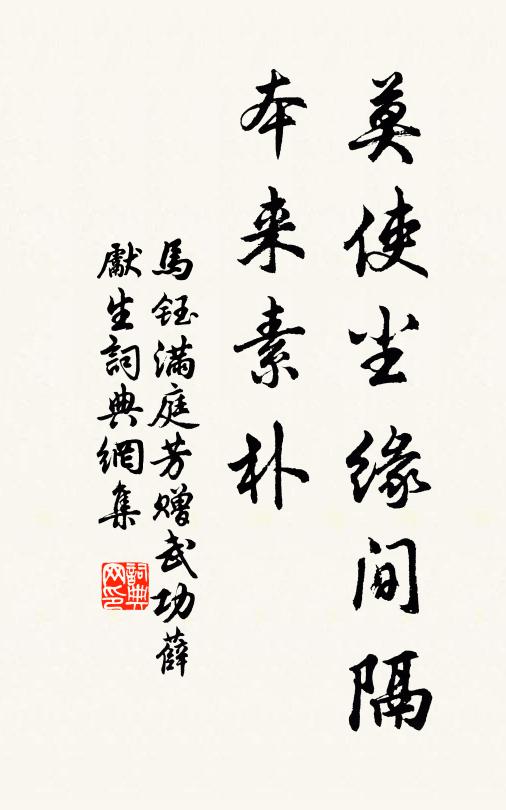 莫使尘缘间隔
本来素朴
馬鈺满庭芳赠武功薛
獻生詞典網集
詞典网印